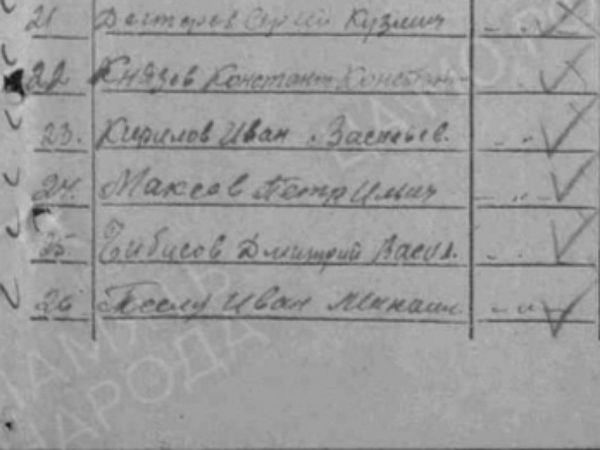 21 Дектерев Сергей Кузмич - " -
22 Князев Констант Констан- "
23. Кирилов Иван Васильев. - " -
24. Максов Петр Ильич - " -
25 Чибисов Дмитрий Васил. - " -
26 Иван Михаил - " -
ПАМЯТЬ
НАРОДА
ЦАМО.РФ